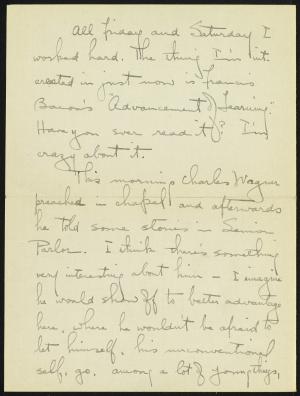 All Friday and Saturday I
worked hard. The thing I'm int-
erested in just now is Francis
Bacon's "Advancement of Learning."
Have you ever read it? I'm
crazy about it.
This morning Charles Wagner
preached in chapel and afterwards
he told some stories in
Parlor. I think there's something
very interesting about him – I imagine
he would show off to better advantage
here, where he wouldn't be afraid to
let himself, his unconventional
self, go. among a lot of young things,